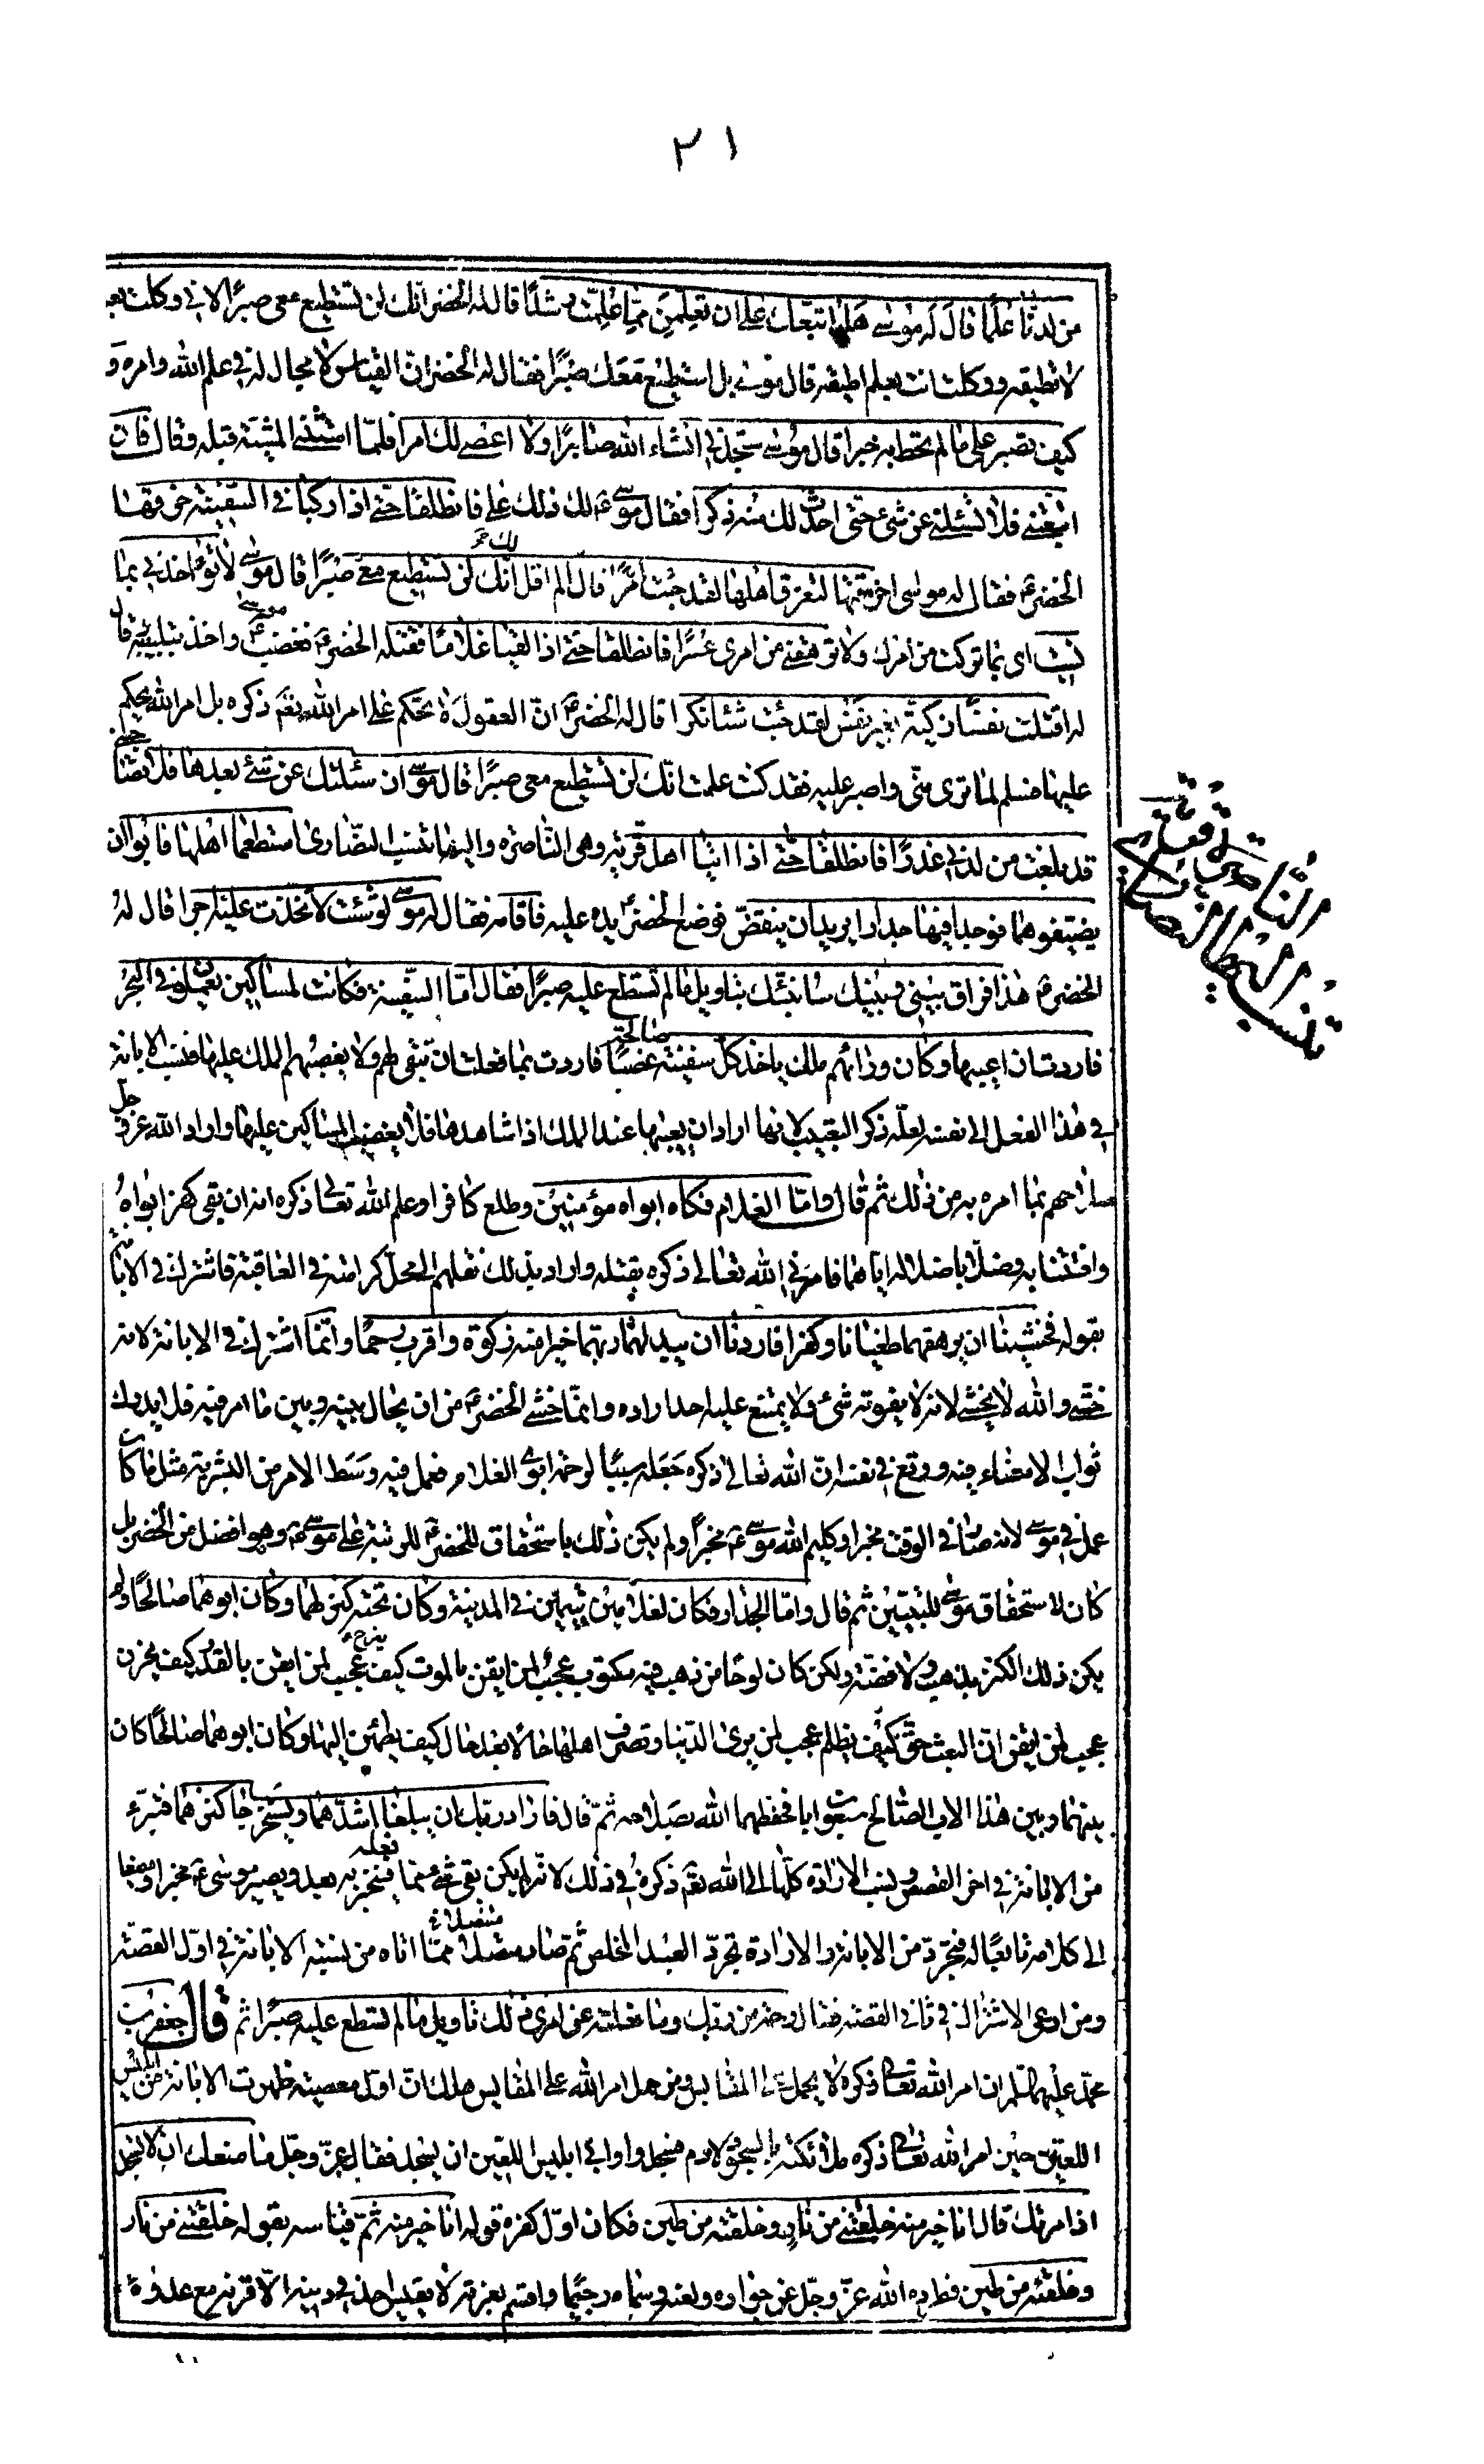 ٢١
من لدنا علما قال له موسى هل اتبعك على ان تعلمن مما علمت رشدا قال له الخضر انك لن تستطيع معى صبرا لانى وكلت بعلم
لا تطيقه ووكلت انت بعلم لا اطيقه قال موسى بل استطيع معك صبرا فقال له الخضر ان القياس لا مجال له فى علم الله وامره و
كيف تصبر على ما لم تحط به خبرا قال موسى ستجدنى انشاء الله صابرا ولا اعصى لك امرا فلما استثنى المشية قبله وقال فان
اتبعتنى فلا تسئلنى عن شىء حتى احدث لك منه ذكرا فقال موسى ع لك ذلك على فانطلقا حتى اذا ركبا فى السفينة خرقها
الخضر ع فقال له موسى اخرقتها لتغرق اهلها لقد جئت شيئا امرا قال الم اقل لك انك لن تستطيع معى صبرا قال موسى لا تؤاخذنى بما
نسيت اى بما تركت من امرك ولا ترهقنى من امرى عسرا فانطلقا حتى اذا لقيا غلاما فقتله الخضر ع فغضب موسى ع واخذ بتلبيبه قال
له اقتلت نفسا زكية بغير نفس لقد جئت شيئا نكرا قال له الخضر ع ان العقول لا تحكم على امر الله تعالى ذكره بل امر الله يحكم
عليها فسلم لما ترى منى واصبر عليه فقد كنت علمت انك لن تستطيع معى صبرا قال موسى ان سئلتك عن شىء بعدها فلا تصاحبنى
قد بلغت من لدنى عذرا فانطلقا حتى اذا اتيا اهل قرية وهى الناصرة واليها تنسب النصارى استطعما اهلها فابوا ان
يضيفوهما فوجدا فيها جدارا يريد ان ينقض فوضع الخضر ع يده عليه فاقامه فقال له موسى لو شئت لاتخذت عليه اجرا قال له
الخضر ع هذا فراق بينى وبينك سانبئك بتاويل ما لم تستطع عليه صبرا فقال اما السفينة فكانت لمساكين يعملون فى البحر
فاردت ان اعيبها وكان ورائهم ملك ياخذ كل سفينة صالحة غصبا فاردت بما فعلت ان تبقى لهم ولا يغصبهم الملك عليها فنسب الابانة
فى هذا الفعل الى نفسه لعلة ذكر التعييب لانه اراد ان يعيبها عند الملك اذا شاهدها فلا يغصب المساكين عليها واراد الله عز وجل
صلاحهم بما امره به من ذلك ثم قال واما الغلام فكان ابواه مؤمنين وطلع كافرا وعلم الله تعالى ذكره انه ان بقى كفر ابواه
وافتتنا به وضلا باضلاله اياهما فامرنى الله تعالى ذكره بقتله واراد بذلك نقلهم الى محل كرامته فى العاقبة فاشترك فى الابانة
بقوله فخشينا ان يرهقهما طغيانا وكفرا فاردنا ان يبدلهما ربهما خيرا منه زكوة واقرب رحما وانما اشترك فى الابانة لانه
خشى والله لا يخشى لانه لا يفوته شىء ولا يمتنع عليه احد اراده وانما خشى الخضر ع من ان يحال بينه وبين ما امر فيه فلا يدرك
ثواب الامضاء فيه ووقع فى نفسه ان الله تعالى ذكره جعله سببا لرحمة ابوى الغلام فعمل فيه وسط الامر من البشرية مثل ما كان
عمل فى موسى لانه صار فى الوقت مخبرا وكليم الله موسى ع مخبرا ولم يكن ذلك باستحقاق للخضر ع للرتبة على موسى ع وهو افضل من الخضر بل
كان لاستحقاق موسى للتبيين ثم قال واما الجدار فكان لغلامين يتيمين فى المدينة وكان تحته كنز لهما وكان ابوهما صالحا ولم
يكن ذلك الكنز بذهب ولا فضة ولكن كان لوحا من ذهب فيه مكتوب عجب لمن ايقن بالموت كيف يفرح عجب لمن ايقن بالقدر كيف يحزن
عجب لمن ايقن ان البعث حق كيف يظلم عجب لمن يرى الدنيا وتصرف اهلها حالا بعد حال كيف يطمئن اليها وكان ابوهما صالحا كان
بينهما وبين هذا الاب الصالح سبعون ابا فحفظهما الله بصلاحه ثم قال فاراد ربك ان يبلغا اشدهما ويستخرجا كنزهما فتبرء
من الابانة فى اخر القصص ونسب الارادة كلها الى الله تعالى ذكره فى ذلك لانه لم يكن بقى شىء مما فعله فيخبر به بعد ويصير موسى ع مخبرا ومصغيا
الى كلامه تابعا له فتجرد من الابانة والارادة تجرد العبد المخلص ثم صار متنصلا مما اتاه من نسبة الابانة فى اول القصة
ومن ادعى الاشتراك فى ثانى القصة فقال رحمة من ربك وما فعلته عن امرى ذلك تاويل ما لم تسطع عليه صبرا ثم قال جعفر بن
محمد عليهما السلام ان امر الله تعالى ذكره لا يحمل على المقاييس ومن حمل امر الله على المقاييس هلك ان اول معصية ظهرت الابانة من ابليس
اللعين حين امر الله تعالى ذكره ملائكته بالسجود لادم فسجدوا وابى ابليس اللعين ان يسجد فقال عز وجل ما منعك ان لا تسجد
اذ امرتك قال انا خير منه خلقتنى من نار وخلقته من طين فكان اول كفره قوله انا خير منه ثم قياسه بقوله خلقتنى من نار
وخلقته من طين فطرده الله عز وجل عن جواره ولعنه وسماه رجيما واقسم بعزته لا يقيس احد فى دينه الا قرنه مع عدوه
الناصرة قرية
تنسب اليها النصارى